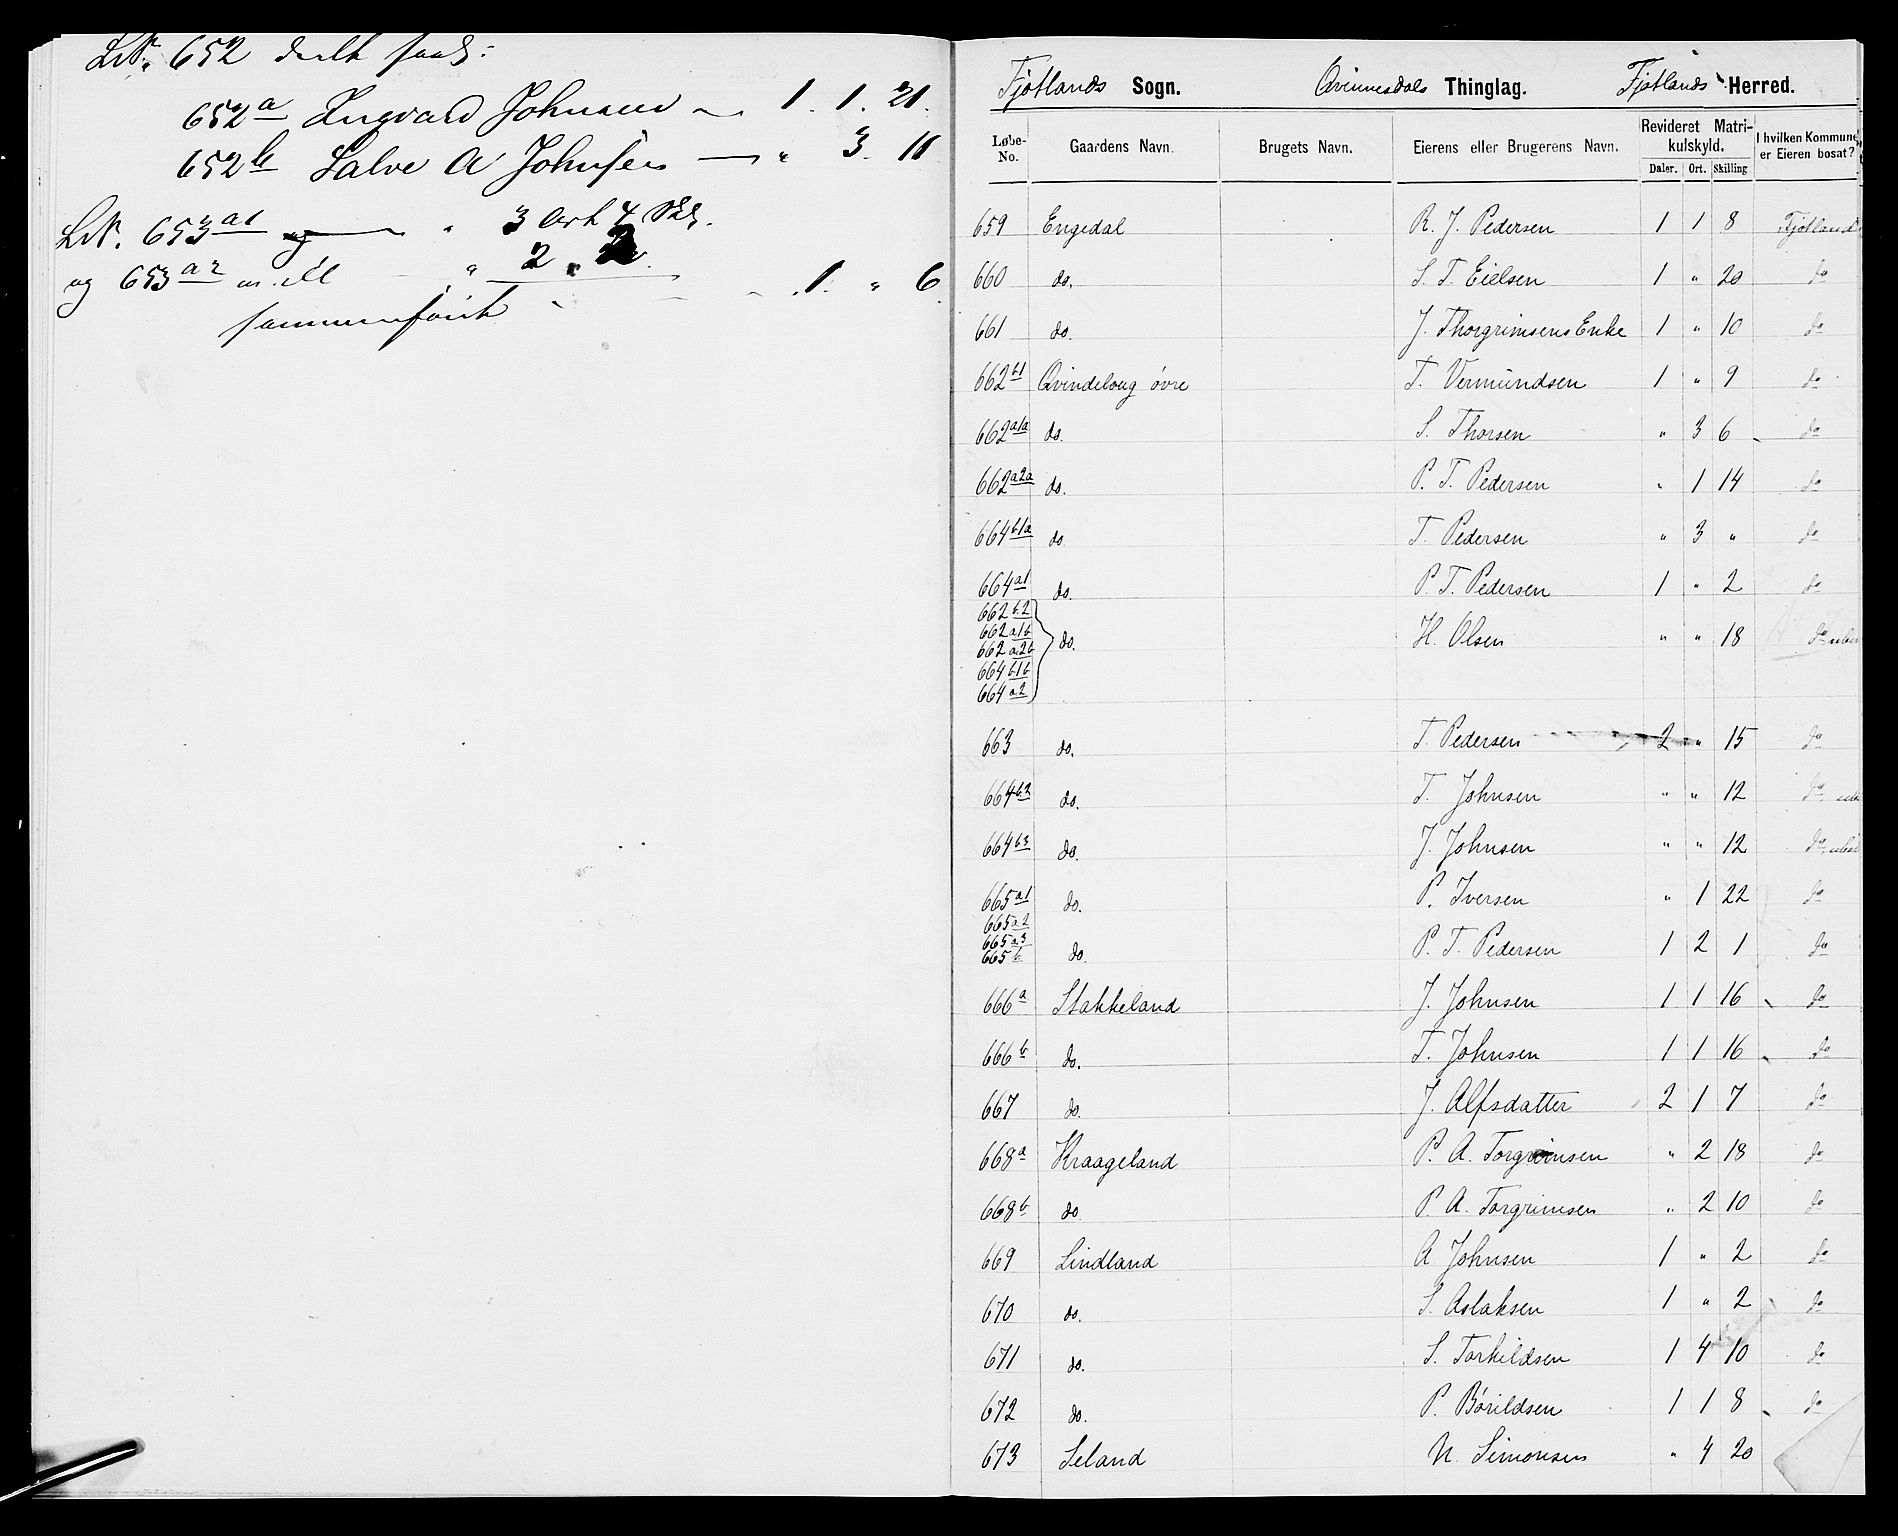 LN. 652 deelt saal:
652a Ingvard Johnsen — 1. 1. 21.
652b Salve A Johnsen — " 3. 11
LN. 653a1 " 3 Ort 4 Skl.
og 653a2 " 2 " 2. 1. " 6
sammenføiet
Fjotlands Sogn. Qvinnesdals Thinglag. Fjotlands Herred.
Løbe-No. Gaardens Navn. Brugets Navn. Eierens eller Brugerens Navn. Revideret Matrikulskyld. Daler. Ort. Skilling I hvilken Kommune er Eieren bosat?
659 Engedal R. J. Pedersen 1 1 8 Fjotland
660 do. S. T. Eielsen 1 " 20 do
661 do. J. Thorgrimsens Enke 1 " 10 do
662b1 Qvindeloug øvre T. Vermundsen 1 " 9 do
662a1a do. S. Thorsen " 3 6 do
662a2a do. P. T. Pedersen " 1 14 do
664b1a do T. Pedersen " 3 " do
664a1 do. P. T. Pedersen 1 " 2 do
662b2
662a1b
662a2b do. H. Olsen " " 18 do
664b1b
664a2
663 do. T. Pedersen 2 " 15 do
664b2 do. T. Johnsen " " 12 do
664b3 do. J. Johnsen " " 12 do
665a1 do. P. Iversen " 1 22 do
665a2
665a3
665b do P. T. Pedersen 1 2 1 do
666a Stakkeland J. Johnsen 1 1 16 do
666b do. T. Johnsen 1 1 16 do
667 do. J. Alfsdatter 2 1 7 do
668a Kraageland P. A. Torgrimsen " 2 18 do
668b do P. A. Torgrimsen " 2 10 do
669 Lindland A Johnsen 1 " 2 do
670 do. S. Aslaksen 1 " 2 do
671 do. S. Torkildsen 1 4 10 do
672 do. P. Børildsen 1 1 8 do
673 Seland N. Simonsen " 4 20